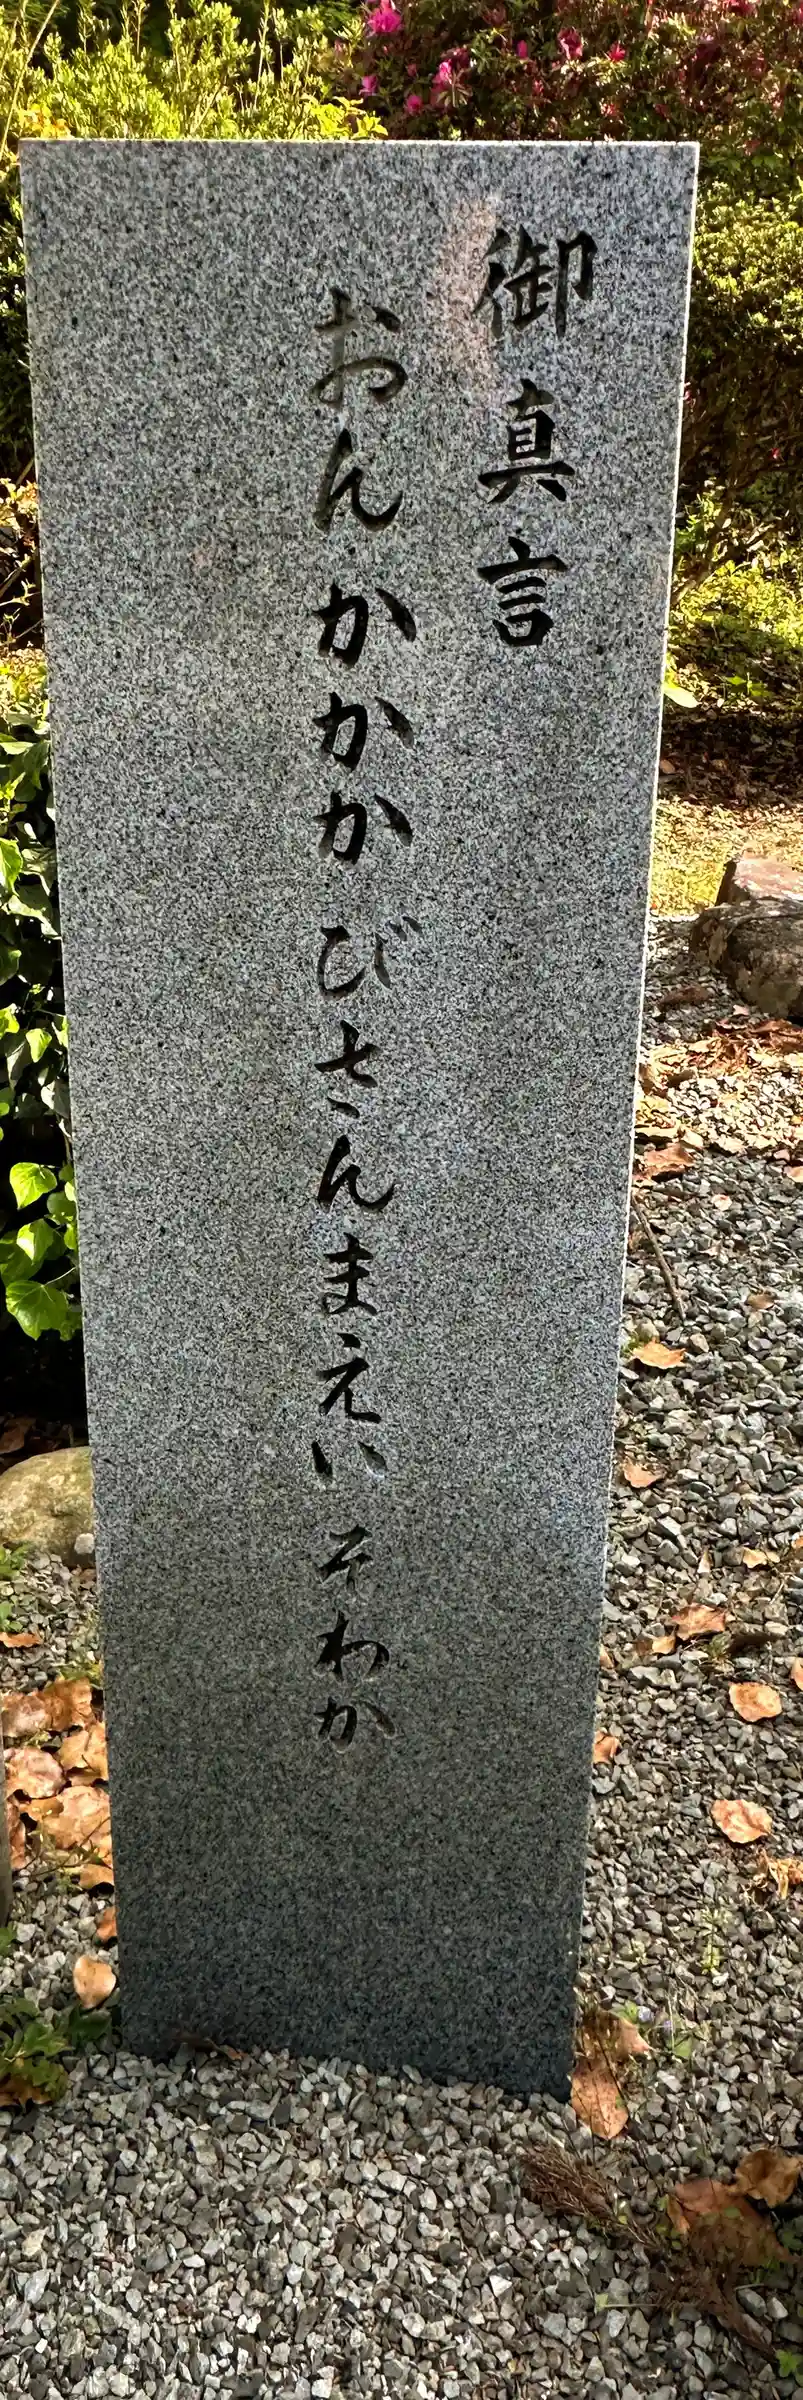 御真言
おんかかかびさんまえいそわか